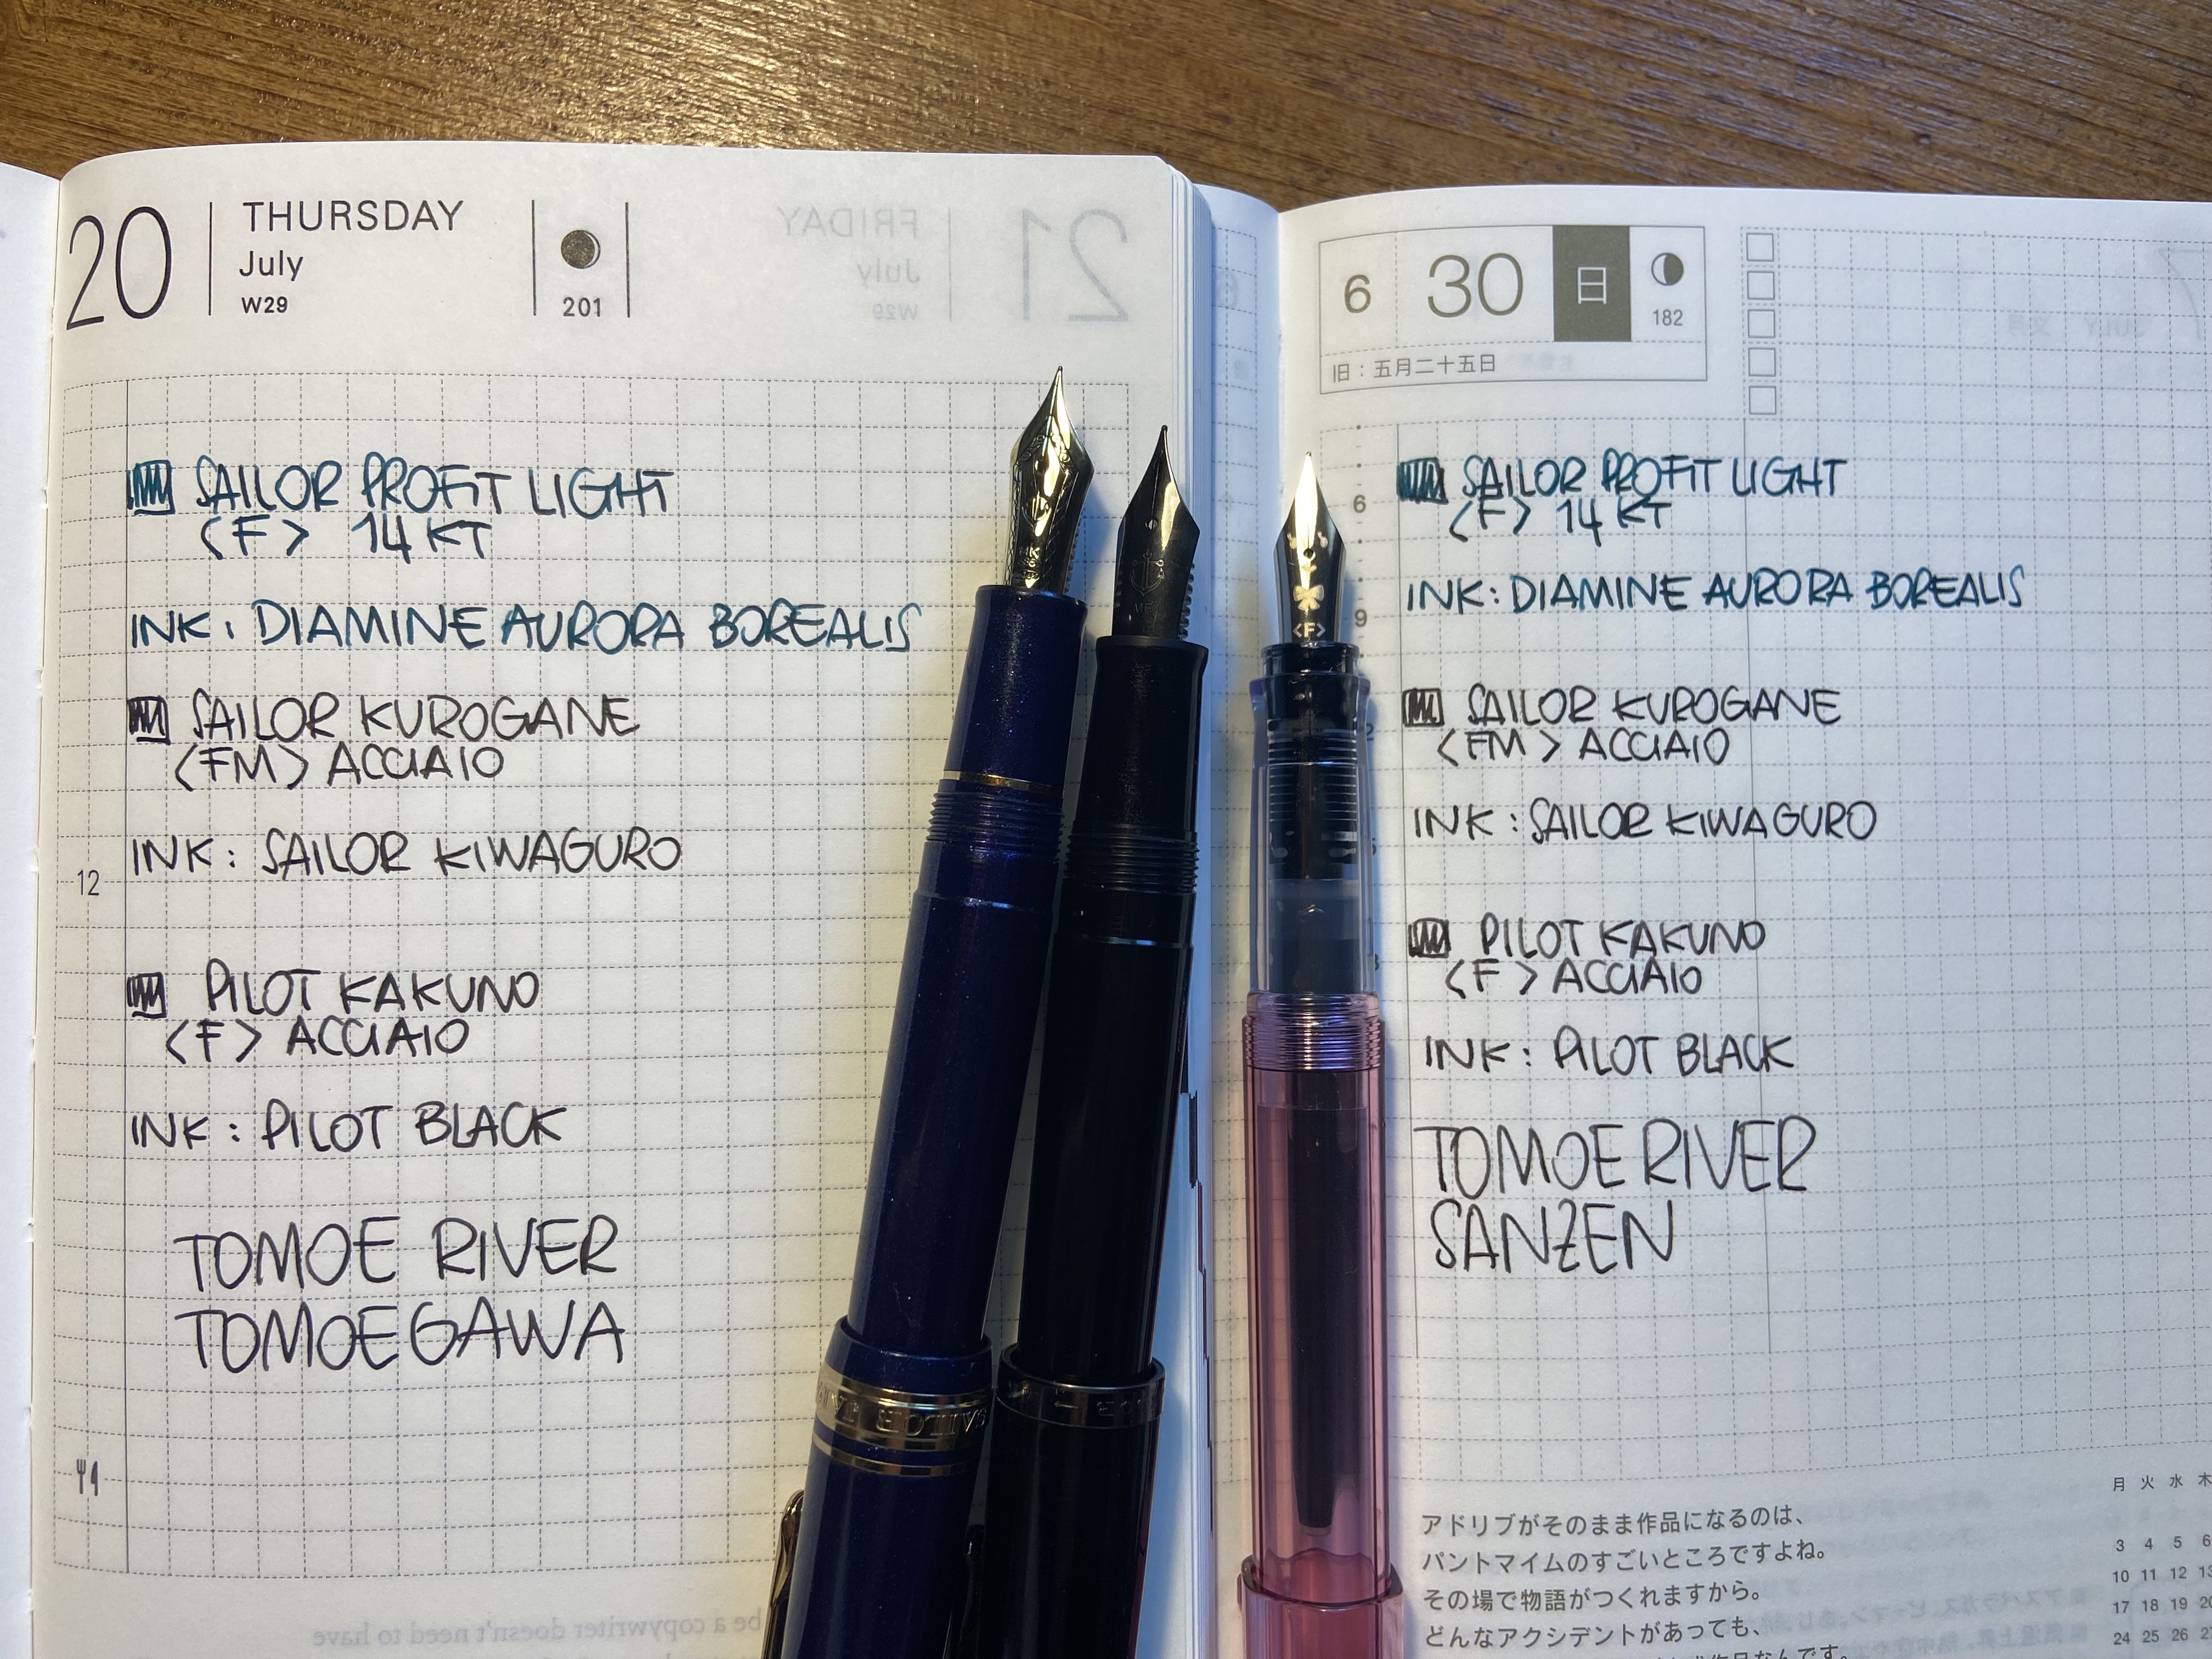 20
THURSDAY
July
W29
201
FRIDAY
July
W29
21
SAILOR PROFIT LIGHT
<F> 14 KT
INK: DIAMINE AURORA BOREALIS
SAILOR KUROGANE
<FM> ACCIAIO
INK: SAILOR KIWAGURO
12
PILOT KAKUNO
<F> ACCIAIO
INK: PILOT BLACK
TOMOE RIVER
TOMOEGAWA
be a copywriter doesn't need to have
<F>
6 30 日
182
旧：五月二十五日
6
SAILOR PROFIT LIGHT
<F> 14 KT
9
INK: DIAMINE AURORA BOREALIS
SAILOR KUROGANE
<FM> ACCIAIO
INK: SAILOR KIWAGURO
PILOT KAKUNO
<F> ACCIAIO
INK: PILOT BLACK
TOMOE RIVER
SANZEN
アドリブがそのまま作品になるのは、
パントマイムのすごいところですよね。
その場で物語がつくれますから。
どんなアクシデントがあっても、
月 火 水 木
3 4 5 6
10 11 12 13
17 18 19 20
24 25 26 27